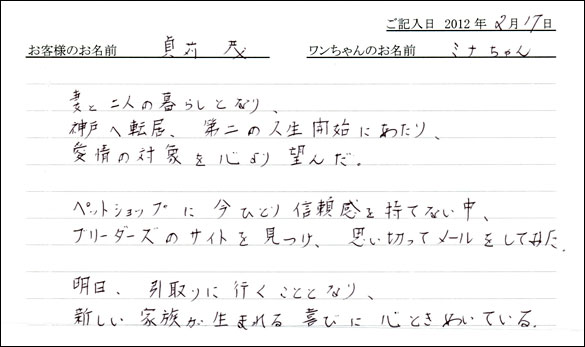 ご記入日 2012年2月17日
お客様のお名前 貞苅 茂 ワンちゃんのお名前 ミナちゃん
妻と二人の暮らしとなり、
神戸へ転居、第二の人生開始にあたり、
愛情の対象を心より望んだ。
ペットショップに今ひとり信頼感を持てない中、
ブリーダーズのサイトを見つけ、思い切ってメールをしてみた。
明日、引取りに行くこととなり、
新しい家族が生まれる喜びに心ときめいている。